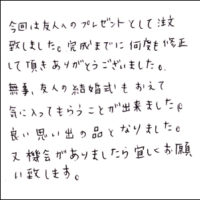 今回は友人へのプレゼントとして注文
致しました。完成までに何度も修正
して頂きありがとうございました。
無事、友人の結婚式もおえて
気に入ってもらうことが出来ました。
良い思い出の品となりました。
又機会がありましたら宜しくお願
い致します。